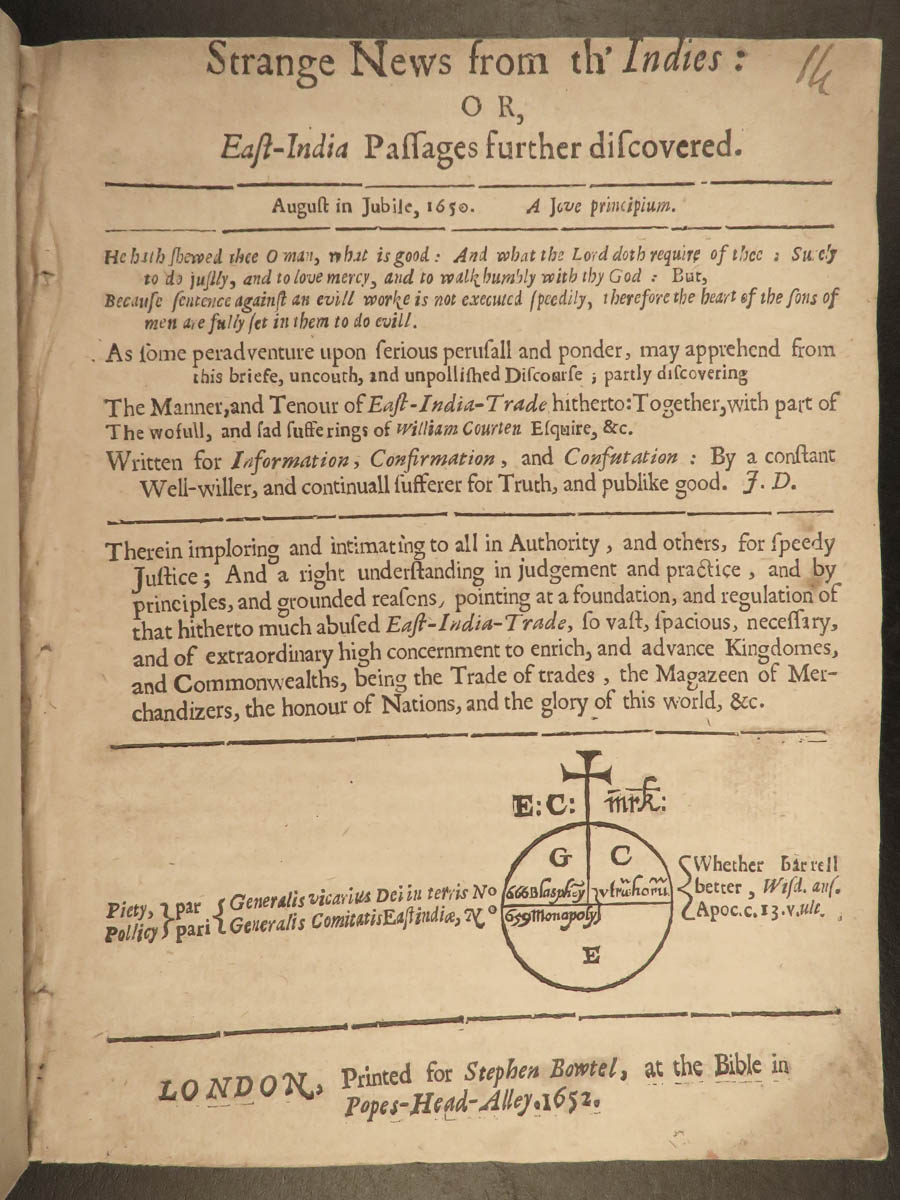 Strange News from th' Indies :
14
O R,
Eaſt-India Paſſages further diſcovered.
Auguſt in Jubile, 1650. A Jove principium.
He hath ſhewed thee O man, what is good : And what the Lord doth require of thee ; Surely
to do juſtly, and to love mercy, and to walk humbly with thy God : But,
Becauſe ſentence againſt an evill worke is not executed ſpeedily, therefore the heart of the ſons of
men are fully ſet in them to do evill.
As ſome peradventure upon ſerious peruſall and ponder, may apprehend from
this briefe, uncouth, and unpolliſhed Diſcourſe ; partly diſcovering
The Manner, and Tenour of Eaſt-India-Trade hitherto: Together, with part of
The wofull, and ſad ſufferings of William Courten Eſquire, &c.
Written for Information, Confirmation, and Confutation : By a conſtant
Well-willer, and continuall ſufferer for Truth, and publike good. J. D.
Therein imploring and intimating to all in Authority, and others, for ſpeedy
Juſtice; And a right underſtanding in judgement and practice, and by
principles, and grounded reaſens, pointing at a foundation, and regulation of
that hitherto much abuſed Eaſt-India-Trade, ſo vaſt, ſpacious, neceſſary,
and of extraordinary high concernment to enrich, and advance Kingdomes,
and Commonwealths, being the Trade of trades, the Magazeen of Mer-
chandizers, the honour of Nations, and the glory of this world, &c.
E: C: mrk:
G C
Piety, par Generalis vicarius Dei in terris No 666 Blasphey Whether barrell
better, Wiſd. anſ.
Pollicy pari Generalis Comitatis Eaſtindiæ, No 659 Monopoly Apoc. c. 13. v. ult.
E
LONDON, Printed for Stephen Bowtel, at the Bible in
Popes-Head-Alley. 1652.